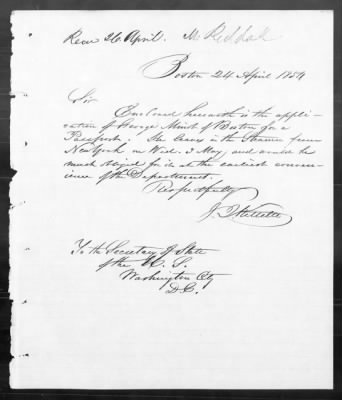 Recd 26 April. Mr Reddall
Boston 24 April 1854
Sir
Enclosed herewith is the appli-
cation of George Minot of Boston for a
Passport. He leaves in the Steamer from
New York on Wed. 3 May, and would be
much obliged for it at the earliest conven-
ience of the Department.
Respectfully
To the Secretary of State
of the U. S.
Washington City
D.C.